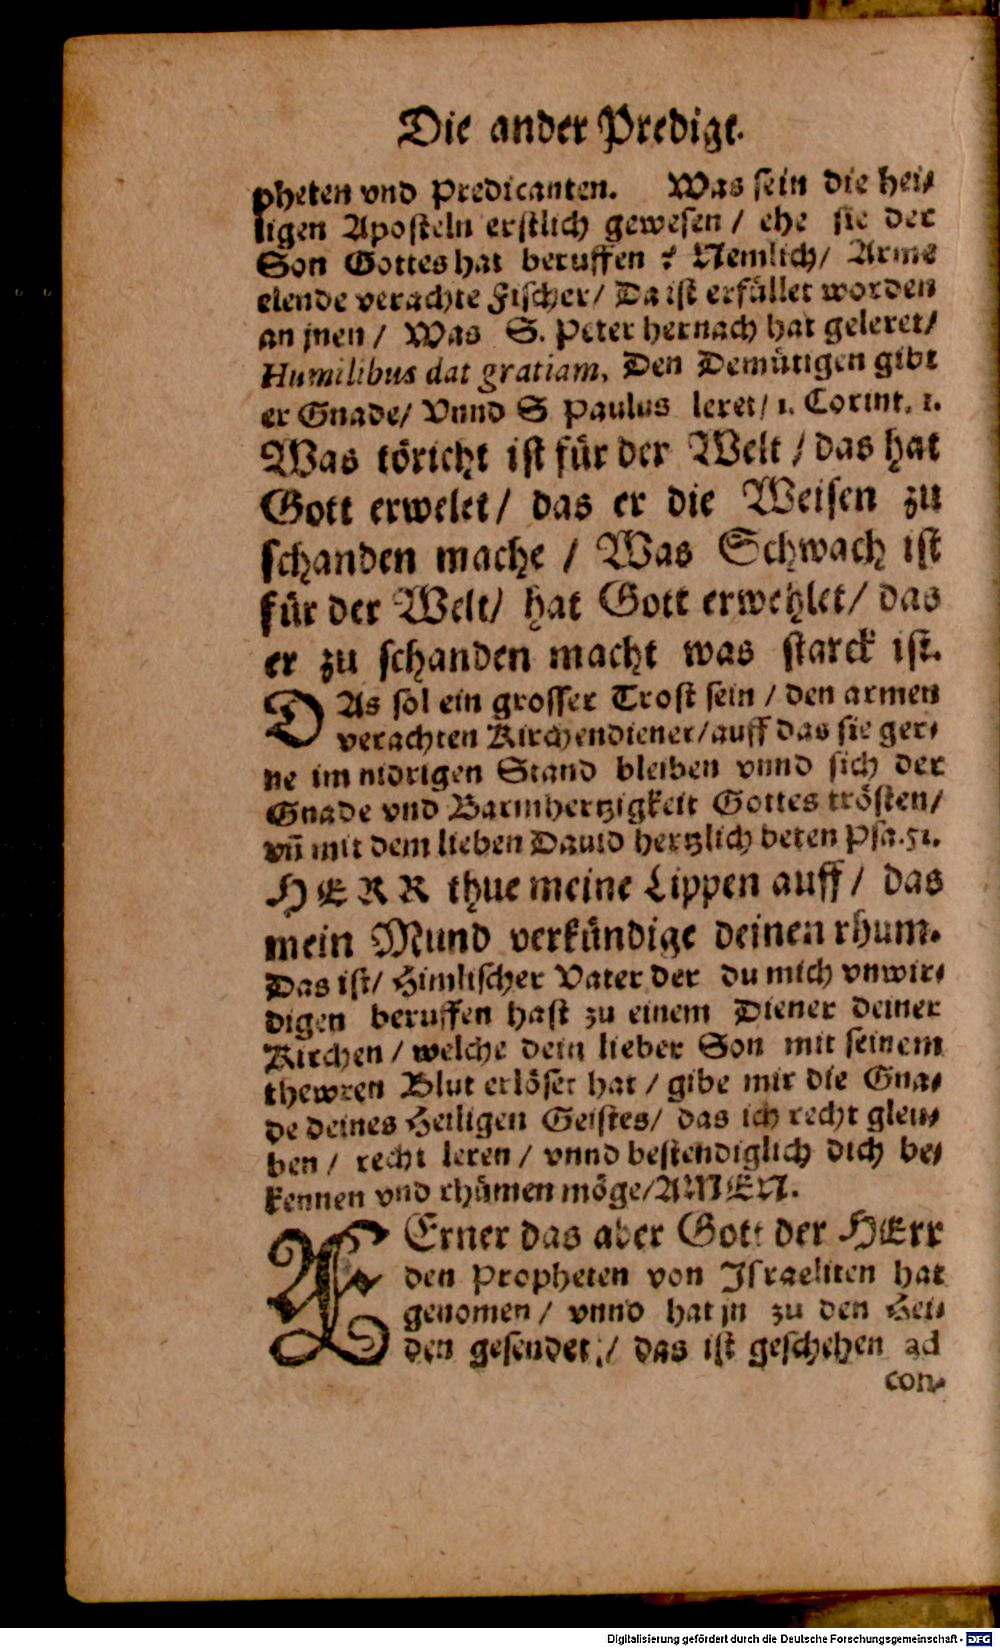 Die ander Predigt.
pheten vnd Predicanten. Was sein die hei⸗
ligen Aposteln erstlich gewesen / ehe sie der
Son Gottes hat beruffen ? Nemlich / Arme
elende verachte Fischer / Da ist erfüllet worden
an jnen / Was S. Peter hernach hat geleret /
Humilibus dat gratiam, Den Demütigen gibt
er Gnade / Vnnd S Paulus leret / 1. Corint. 1.
Was töricht ist für der Welt / das hat
Gott erwelet / das er die Weisen zu
schanden mache / Was Schwach ist
für der Welt / hat Gott erwehlet / das
er zu schanden macht was starck ist.
DAs sol ein grosser Trost sein / den armen
verachten Kirchendiener / auff das sie ger⸗
ne im nidrigen Stand bleiben vnnd sich der
Gnade vnd Barmhertzigkeit Gottes trösten /
vñ mit dem lieben Dauid hertzlich beten Psa. 51.
HERR thue meine Lippen auff / das
mein Mund verkündige deinen rhum.
Das ist / Himlischer Vater der du mich vnwir⸗
digen beruffen hast zu einem Diener deiner
Kirchen / welche dein lieber Son mit seinem
thewren Blut erlöset hat / gibe mir die Gna⸗
de deines Heiligen Geistes / das ich recht gleu⸗
ben / recht leren / vnnd bestendiglich dich be⸗
kennen vnd rhümen möge / AMEN.
FErner das aber Gott der HErr
den Propheten von Israeliten hat
genomen / vnnd hat jn zu den Hei⸗
den gesendet / das ist geschehen ad
con⸗
Digitalisierung gefördert durch die Deutsche Forschungsgemeinschaft - DFG